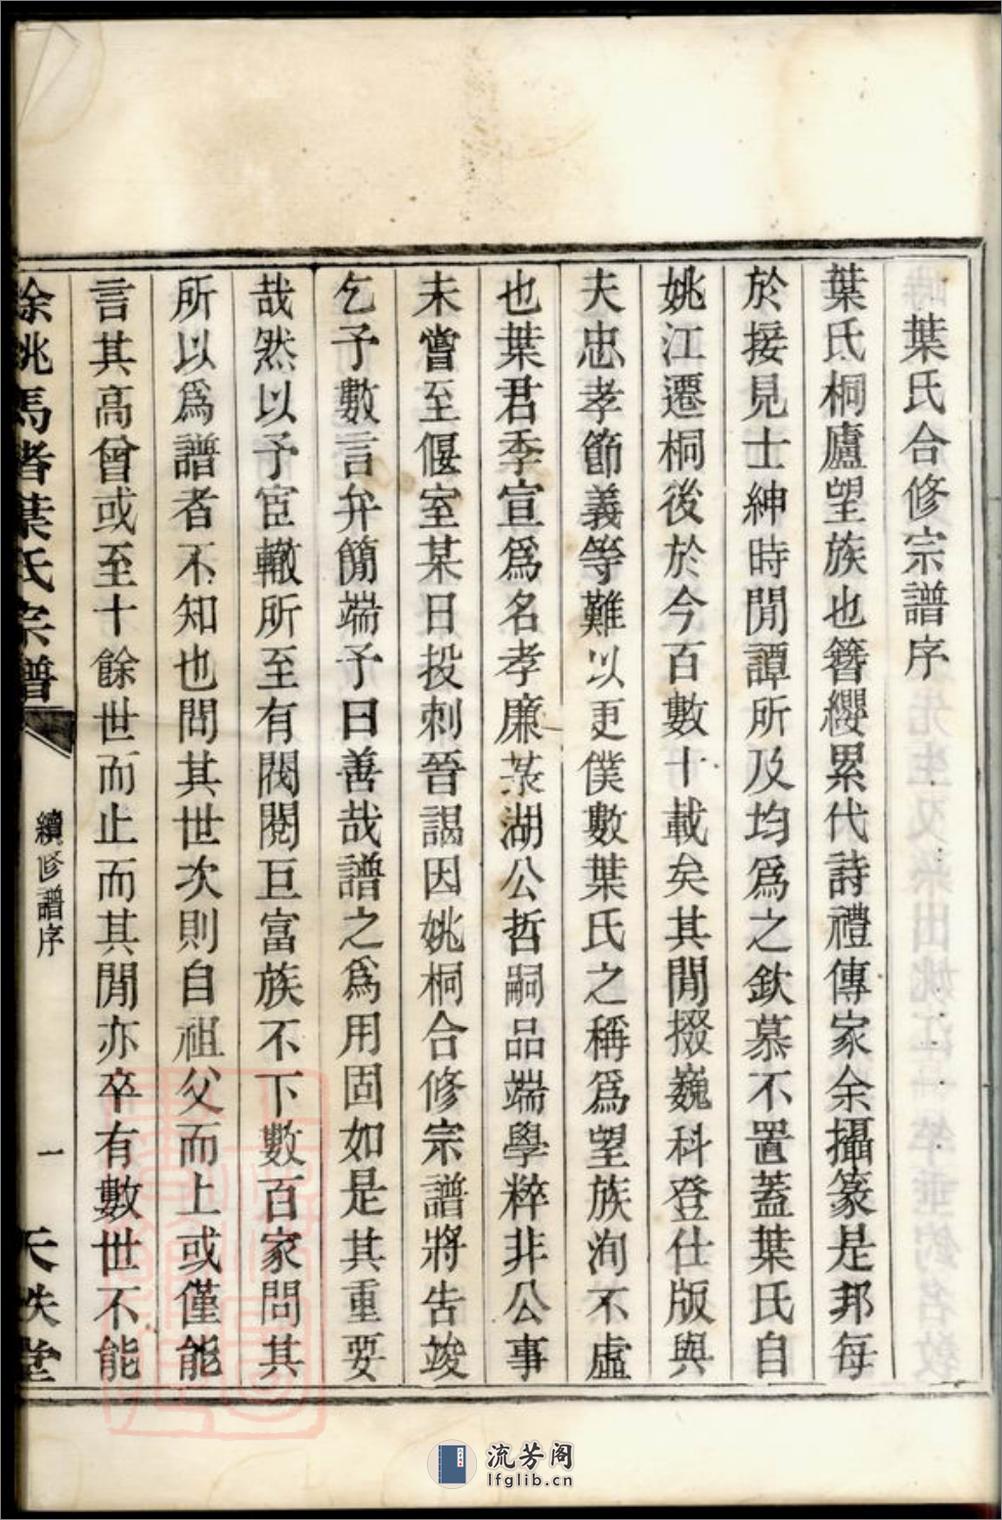 葉氏合修宗譜序
葉氏桐廬望族也簪纓累代詩禮傳家余攝篆是邦每
於接見士紳時閒譚所及均爲之欽慕不置蓋葉氏自
姚江遷桐後於今百數十載矣其閒掇巍科登仕版與
夫忠孝節義等難以更僕數葉氏之稱爲望族洵不虛
也葉君季宣爲名孝廉菉湖公哲嗣品端學粹非公事
未嘗至偃室某日投刺晉謁因姚桐合修宗譜將告竣
乞予數言弁簡端予曰善哉譜之爲用固如是其重要
哉然以予宦轍所至有閥閱巨富族不下數百家問其
所以爲譜者不知也問其世次則自祖父而上或僅能
言其高曾或至十餘世而止而其閒亦卒有數世不能
餘姚馬渚葉氏宗譜
續修譜序
一
天敘堂
流芳阁
lfglib.cn